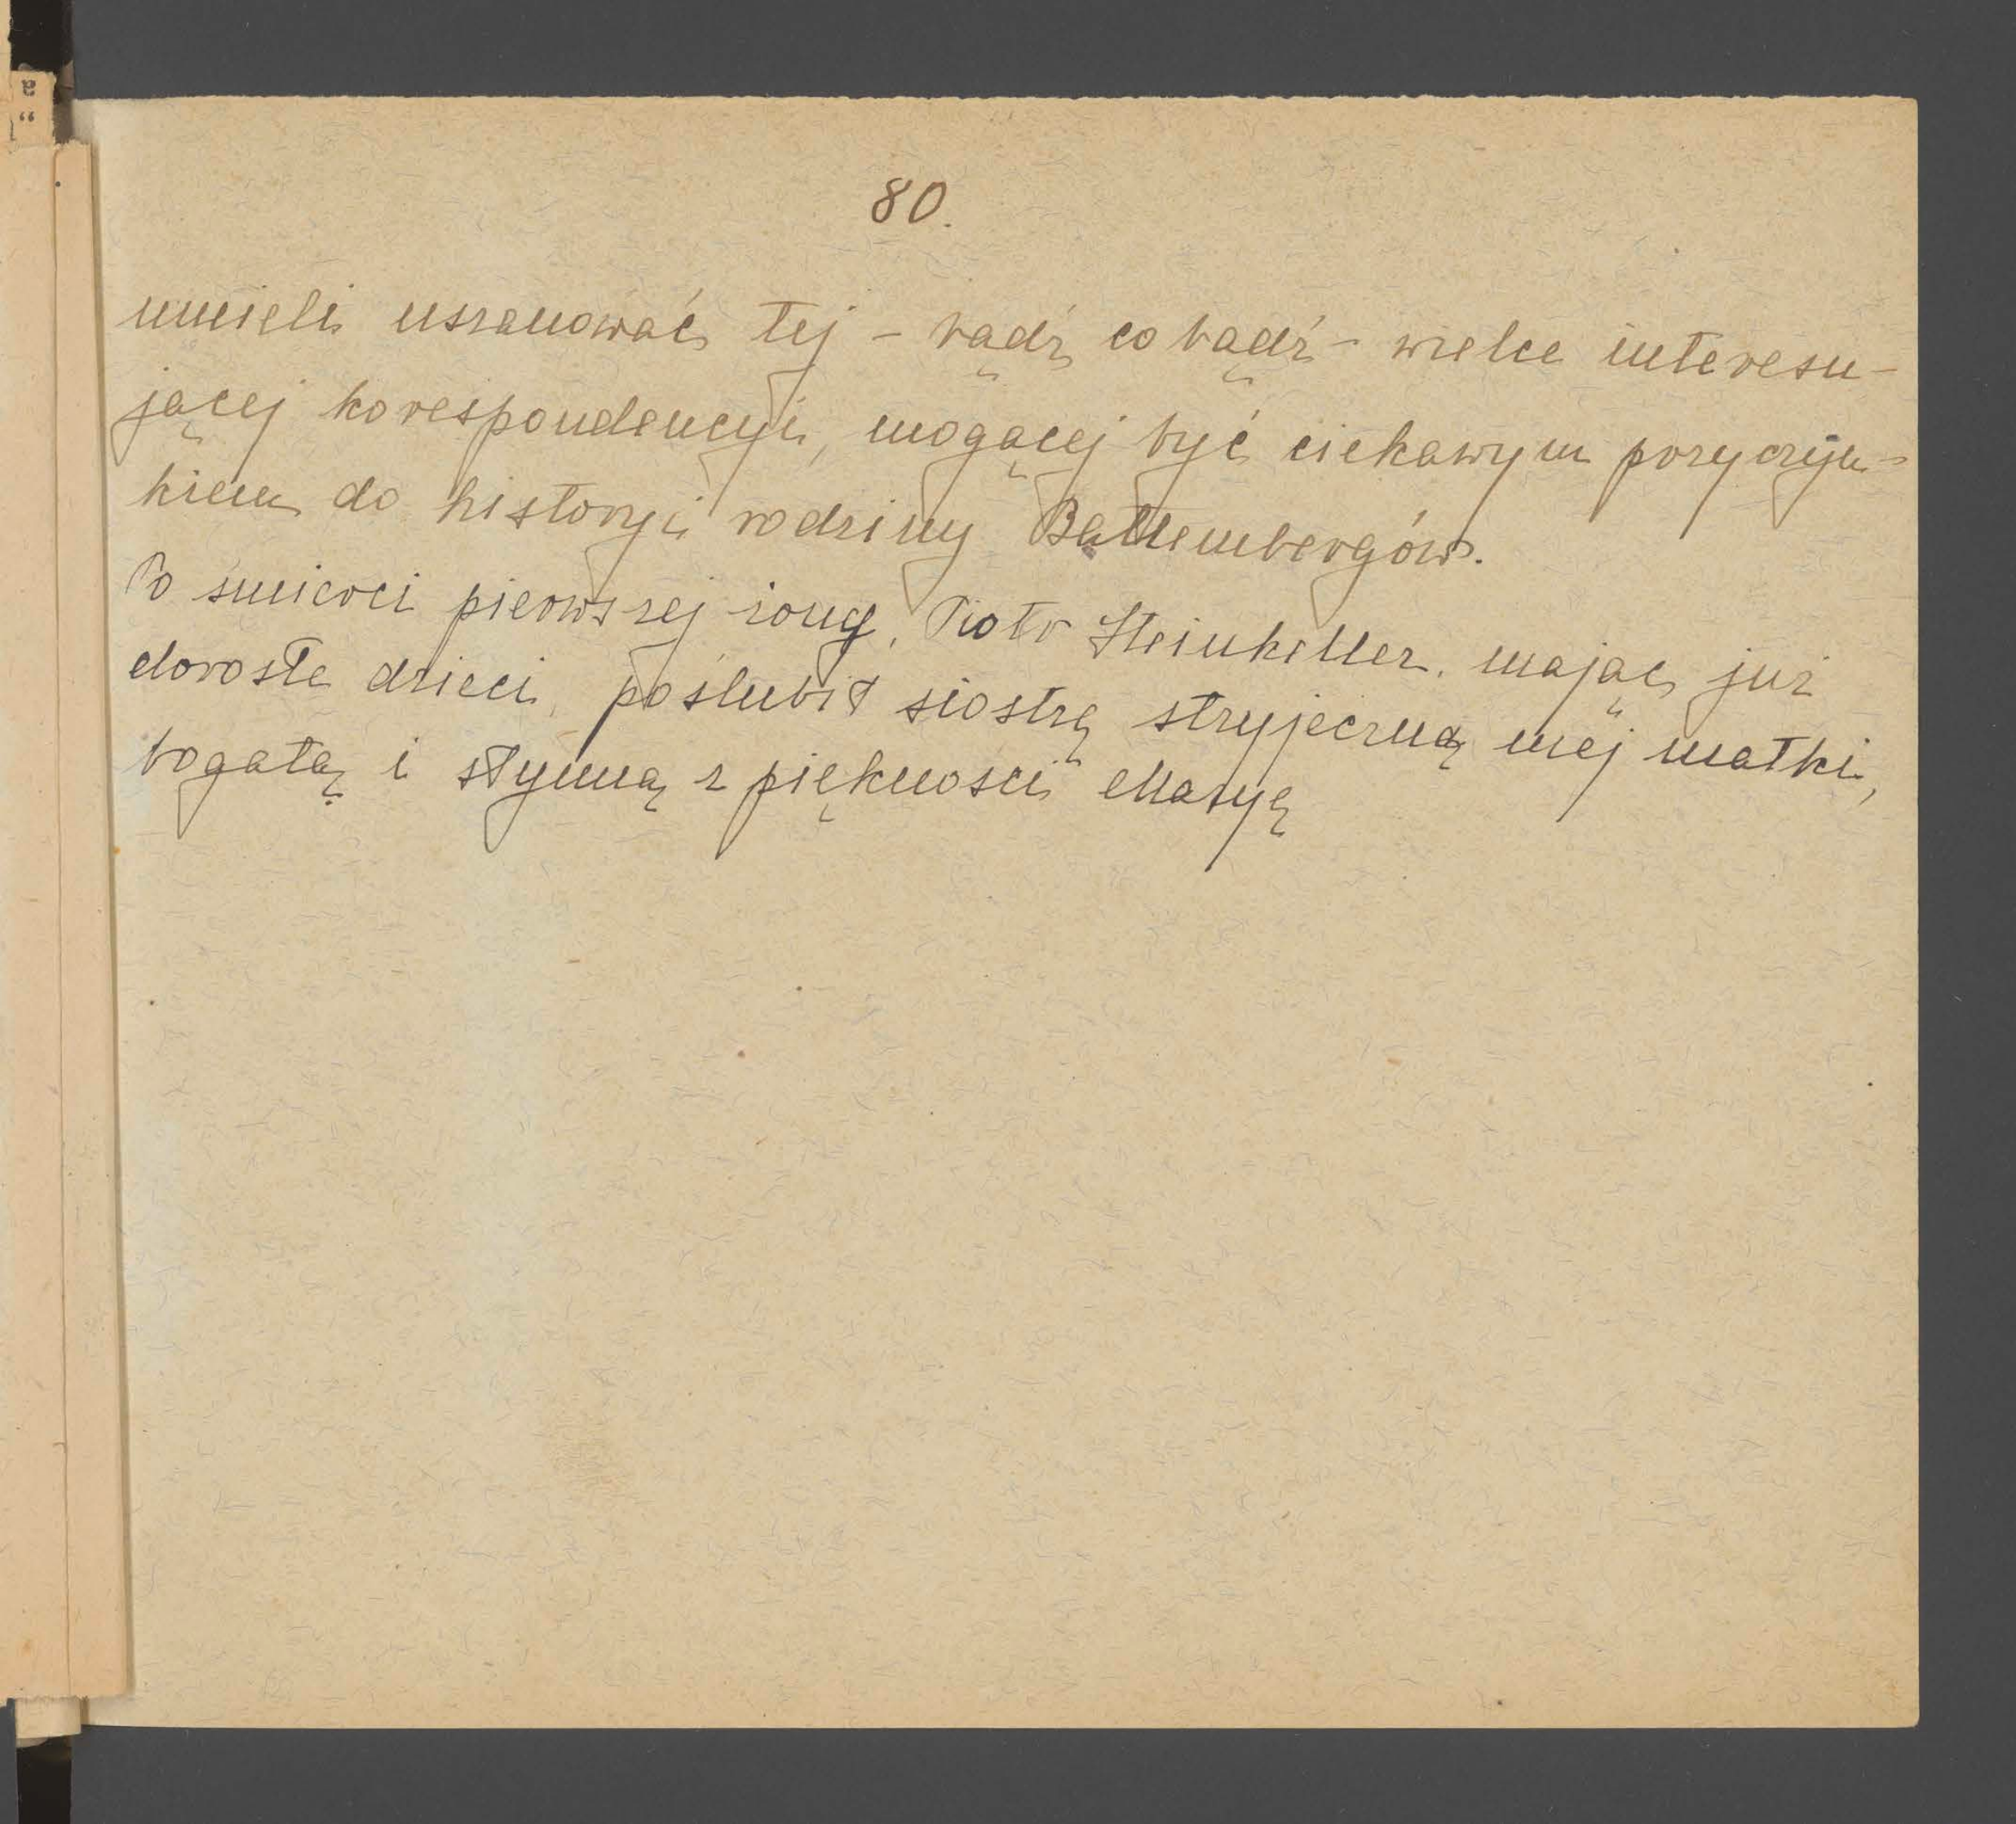 80.
umieli uszanować tej - bądź co bądź - wielce interesu-
jącej korespondencyi, mogącej być ciekawym przyczyn-
kiem do historyi rodziny Battembergów.
Po śmierci pierwszej żony, Piotr Steinkeller, mając już
dorosłe dzieci, poślubił siostrę stryjeczną mej matki,
bogatą i słynną z piękności Maryę